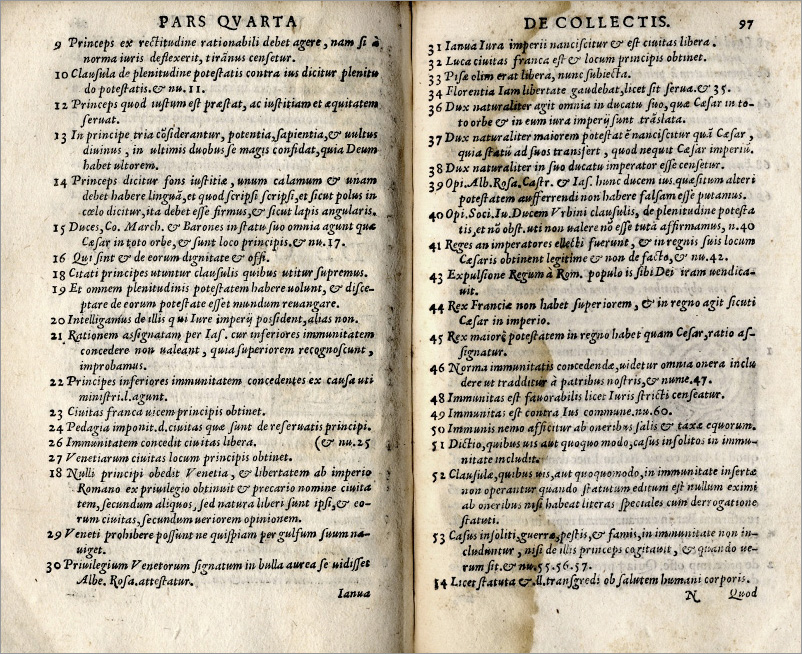 PARS QVARTA
9 Princeps ex rectitudine rationabili debet agere, nam si à
norma iuris deflexerit, tirānus censetur.
10 Clausula de plenitudine potestatis contra ius dicitur plenitu
do potestatis.& nu.11.
12 Princeps quod iustum est præstat, ac iustitiam et æquitatem
seruat.
13 In principe tria cōsiderantur, potentia, sapientia, & uultus
diuinus, in ultimis duobus se magis confidat, quia Deum
habet ultorem.
14 Princeps dicitur fons iustitiæ, unum calamum & unam
debet habere linguā, et quod scripsi scripsi, et sicut polus in
cœlo dicitur, ita debet esse firmus, & sicut lapis angularis.
15 Duces, Co. March. & Barones in statu suo omnia agunt quæ
Cæsar in toto orbe, & sunt loco principis.& nu.17.
16 Qui sint & de eorum dignitate & offi.
18 Citati principes utuntur clausulis quibus utitur supremus.
19 Et omnem plenitudinis potestatem habere uolunt, & disce-
ptare de eorum potestate esset mundum reuangare.
20 Intelligamus de illis qui Iure imperij possident, alias non.
21 Rationem assignatam per Ias. cur inferiores immunitatem
concedere non ualeant, quia superiorem recognoscunt,
improbamus.
22 Principes inferiores immunitatem concedentes ex causa uti
ministri.l.agunt.
23 Ciuitas franca uicem principis obtinet.
24 Pedagia imponit.d.ciuitas quæ sunt de reseruatis principi.
26 Immunitatem concedit ciuitas libera. (& nu.25
27 Venetiarum ciuitas locum principis obtinet.
18 Nulli principi obedit Venetia, & libertatem ab imperio
Romano ex priuilegio obtinuit & precario nomine ciuita
tem, secundum aliquos, sed natura liberi sunt ipsi, & eo-
rum ciuitas, secundum ueriorem opinionem.
29 Veneti prohibere possunt ne quispiam per gulfum suum na-
uiget.
30 Priuilegium Venetorum signatum in bulla aurea se uidisset
Albe. Rosa. attestatur.
Ianua
DE COLLECTIS. 97
31 Ianua Iura imperii nanciscitur & est ciuitas libera.
32 Luca ciuitas franca est & locum principis obtinet.
33 Pisæ olim erat libera, nunc subiecta.
34 Florentia Iam libertate gaudebat, licet sit serua.& 35.
36 Dux naturaliter agit omnia in ducatu suo, quæ Cæsar in to-
to orbe & in eum iura imperij sunt trāslata.
37 Dux naturaliter maiorem potestatē nanciscitur quā Cæsar,
quia statū ad suos transfert, quod nequit Cæsar imperiū.
38 Dux naturaliter in suo ducatu imperator esse censetur.
39 Opi. Alb. Rosa. Castr. & Ias. hunc ducem ius quæsitum alteri
potestatem aufferrendi non habere falsam esse putamus.
40 Opi. Soci. Iu. Ducem Vrbini clausulis, de plenitudine potesta
tis, et nō obst. uti non ualere nō esse tutā affirmamus, n.40
41 Reges an imperatores electi fuerunt, & in regnis suis locum
Cæsaris obtinent legitime & non de facto, & nu.42.
43 Expulsione Regum à Rom. populo is sibi Dei iram uendica-
uit.
44 Rex Franciæ non habet superiorem, & in regno agit sicuti
Cæsar in imperio.
45 Rex maiorē potestatem in regno habet quam Cesar, ratio as-
signatur.
46 Norma immunitatis concedendæ, uidetur omnia onera inclu
dere ut tradditur à patribus nostris, & nume.47.
48 Immunitas est fauorabilis licet Iuris stricti censeatur.
49 Immunitas est contra Ius commune.nu.60.
50 Immunis nemo afficitur ab oneribus salis & taxæ equorum.
51 Dictio, quibus uis aut quoquo modo, casus insolitos in immu-
nitate includit.
52 Clausulæ, quibus uis, aut quoquomodo, in immunitate insertæ
non operantur quando statutum editum est nullum eximi
ab oneribus nisi habeat literas speciales cum derrogatione
statuti.
53 Casus insoliti, guerræ, pestis, & famis, in immunitate non in-
cluduntur, nisi de illis princeps cogitauit, & quando ue-
rum sit.& nu.55.56.57.
54 Licet statuta & .ll. transgredi ob salutem humani corporis.
N Quod